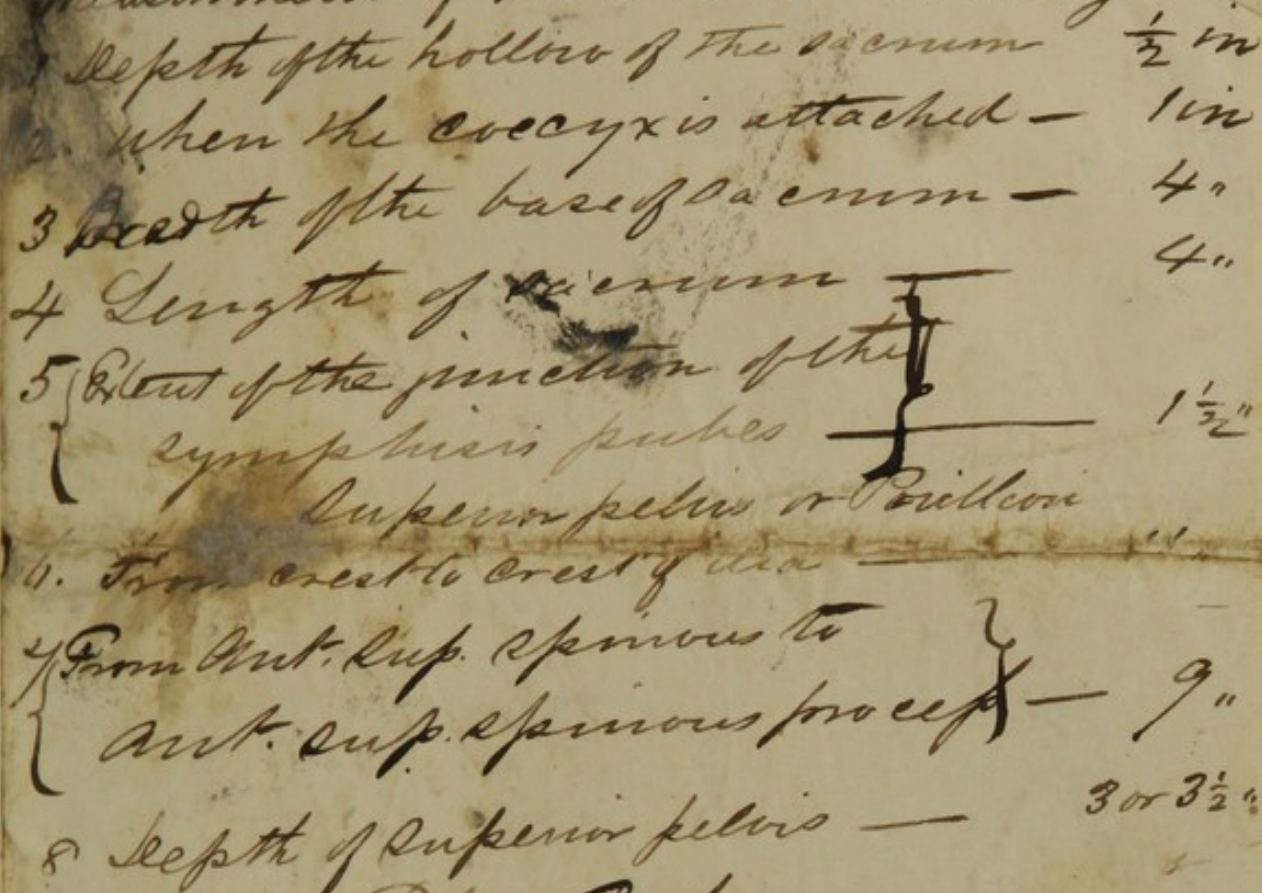 1 Depth of the hollow of the sacrum ½ in
2. when the coccyx is attached — 1 in
3 Breadth of the base of Sacrum — 4 "
4 Length of sacrum — 4 "
5 Extent of the junction of the
symphisis pubes — 1½ "
Superior pelvis or
6. From crest to crest of ilia — "
7 From Ant. Sup. Spinous to
Ant. Sup. Spinous process — 9 "
8 Depth of Superior pelvis — 3 or 3½ "